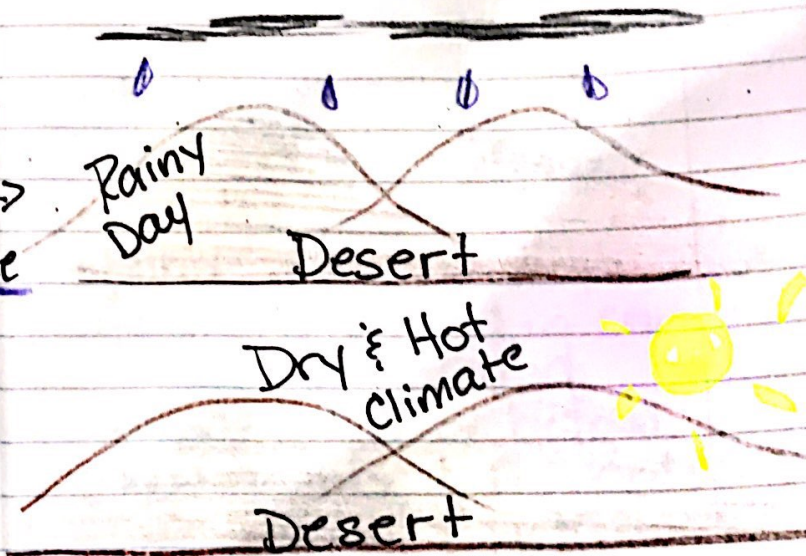 Rainy
Day
Desert
Dry & Hot
Climate
Desert